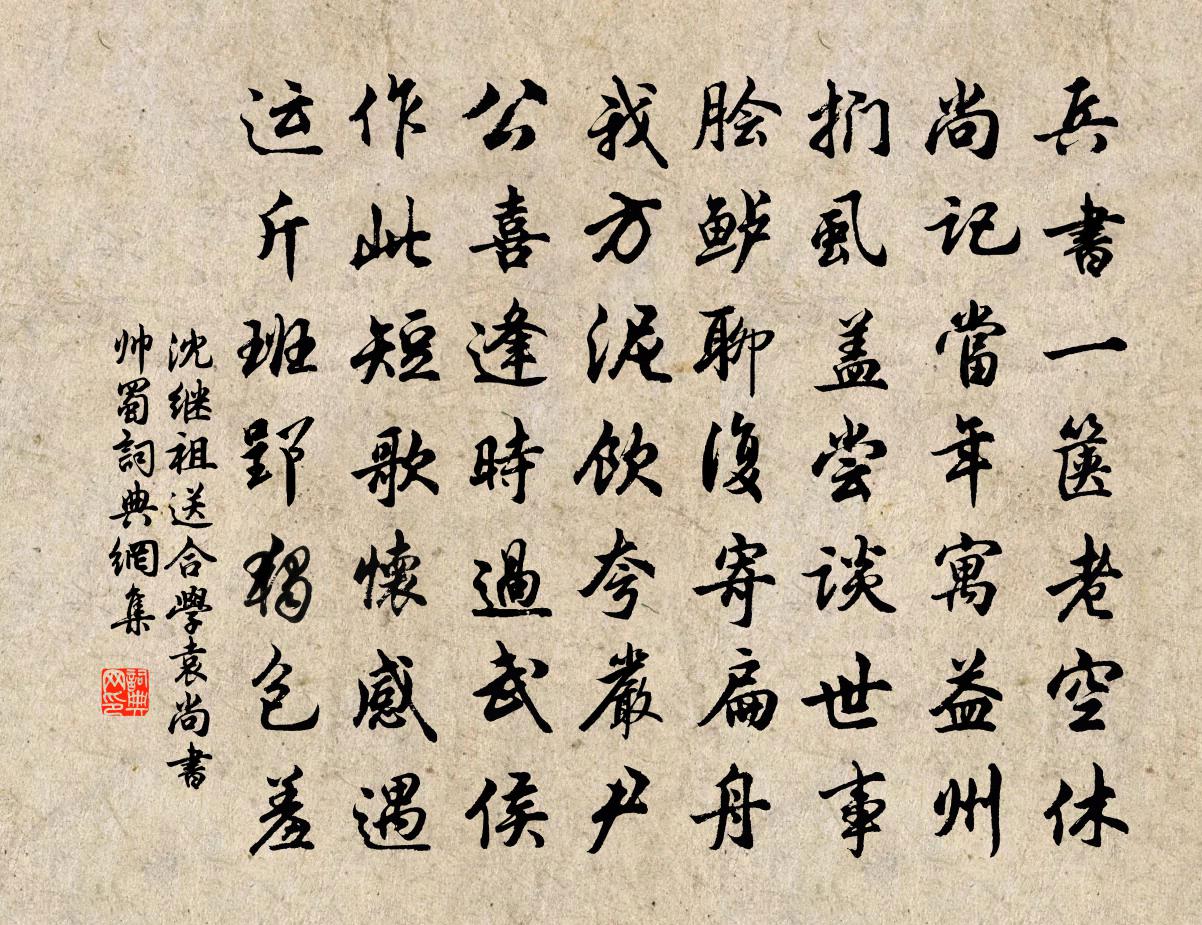 兵書一篋老空休
尚记當年寓益州
捫虱盖尝談世事
脍鲈聊復寄扁舟
我方泥飲夸嚴尹
公喜逢時過武侯
作此短歌懷感遇
运斤班郢独包羞
沈继祖送合學袁尚書
帅蜀詞典網集
詞典网印